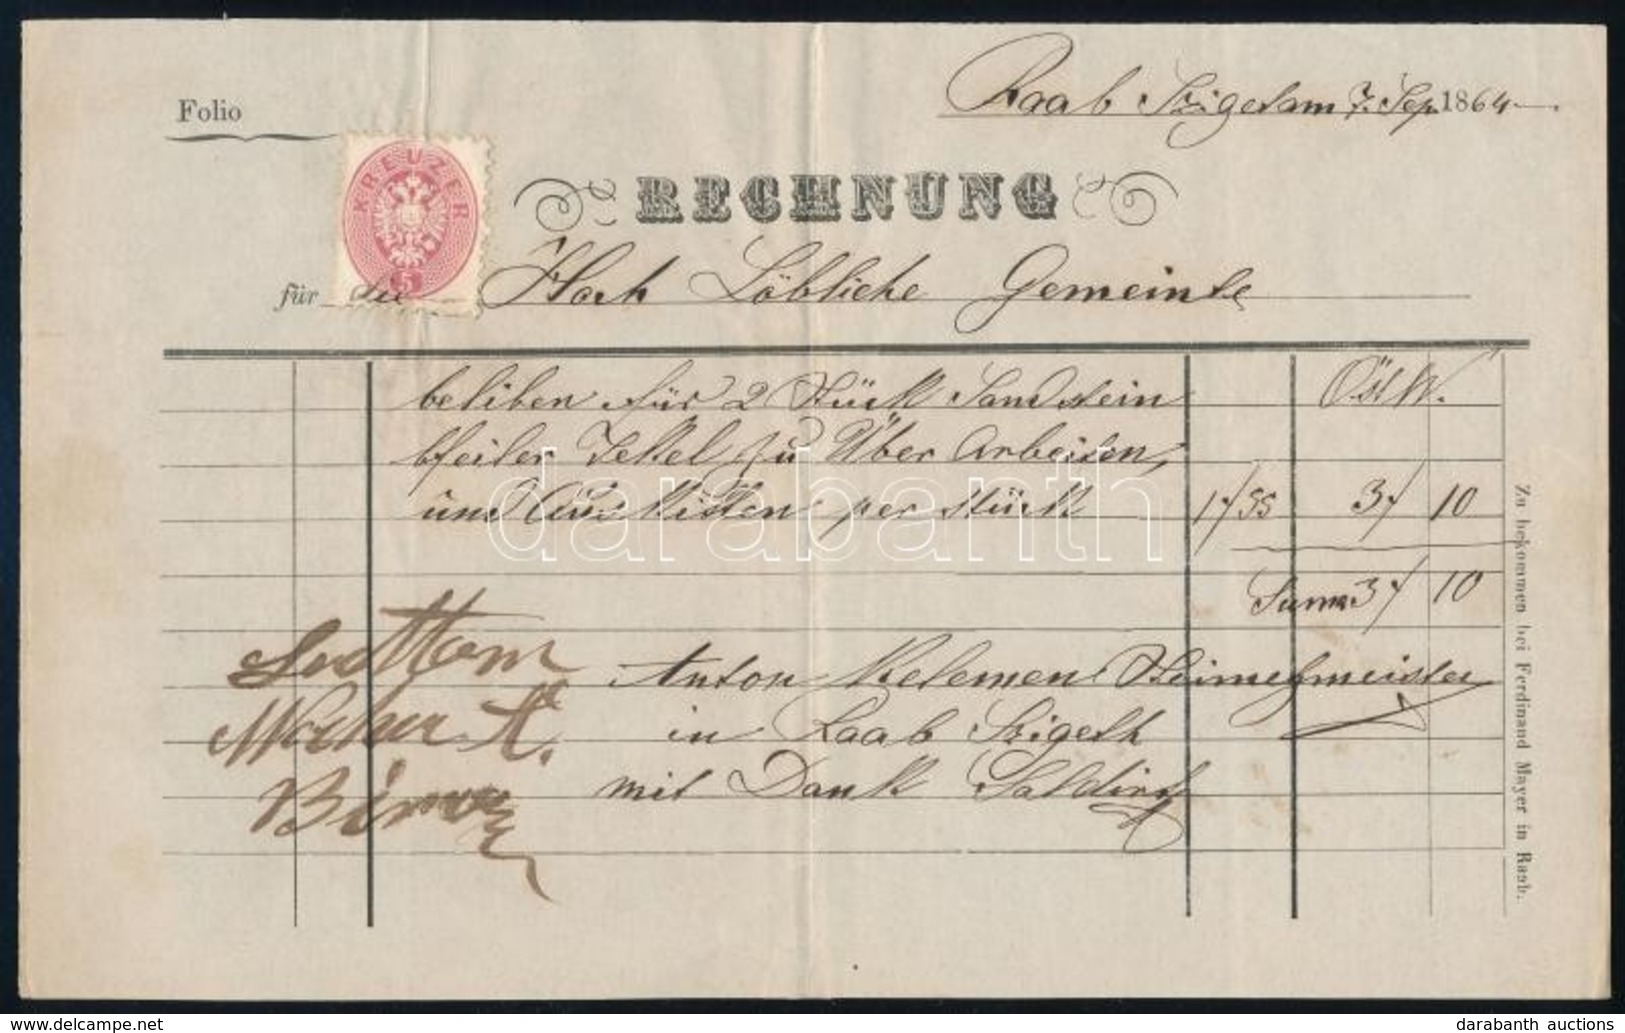 Raab Sziget am 7. Sep. 1864
Folio
KREUZER
5
RECHNUNG
für Die Hoch Löbliche Gemeinde
Öst W.
beliben für 2 Stück Sandstein
bfeiler Dekel zu Über Arbeiten,
und Aus Kitten per Stück 1/55 3/ 10
Suma 3/ 10
Anton Kelemen Steinmetzmeister
in Raab Szigeth
mit Dank Saldirt
Zu bekommen bei Ferdinand Mayer in Raab.
darabanth
darabanth auctions
www.delcampe.net